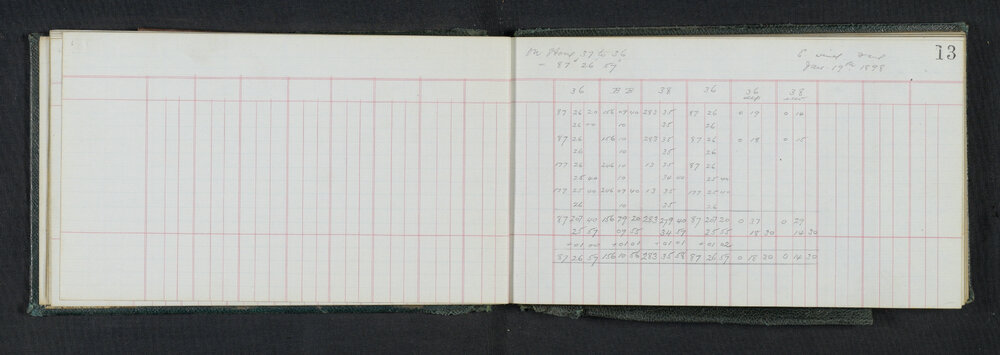 37 to 36
- 87° 26' 59"
E. wind
Jan 19th 1898
13
36 B B 38 36 36 38
dep
87 26 20 156 09 40 283 35 87 26 0 19 0 14
26 00 10 35 26
87 26 156 10 283 35 87 26 0 18 0 15
26 10 35 26
177 26 246 10 13 35 87 26
25 40 10 34 40 25 40
177 25 40 246 09 40 13 35 177 25 40
26 10 35 26
87 207 40 156 79 20 283 279 40 87 207 20 0 37 0 29
25 57 09 55 34 57 25 55 18 30 14 30
+01 00 +01 01 +01 01 +01 02
87 26 59 156 10 56 283 35 58 87 26 59 0 18 30 0 14 30